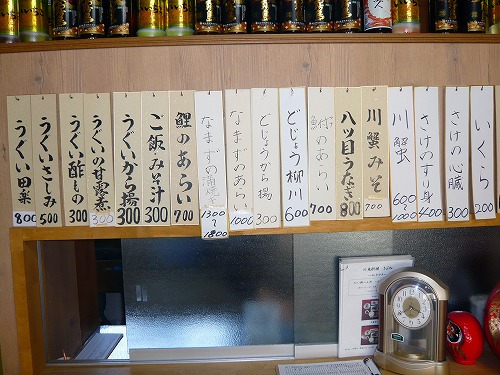 いくら 200
さけの心臓 300
さけのすり身 400
川蟹 600〜1000
川蟹みそ 700
八ツ目うなぎ 800
のあらい 700
どじょう柳川 600
どじょうから揚 300
なまずのあらい 1000
なまずの 1300〜1800
鯉のあらい 700
ご飯みそ汁 300
うぐいから揚 300
うぐいの甘露煮 300
うぐい酢もの 300
うぐいさしみ 500
うぐい田楽 800